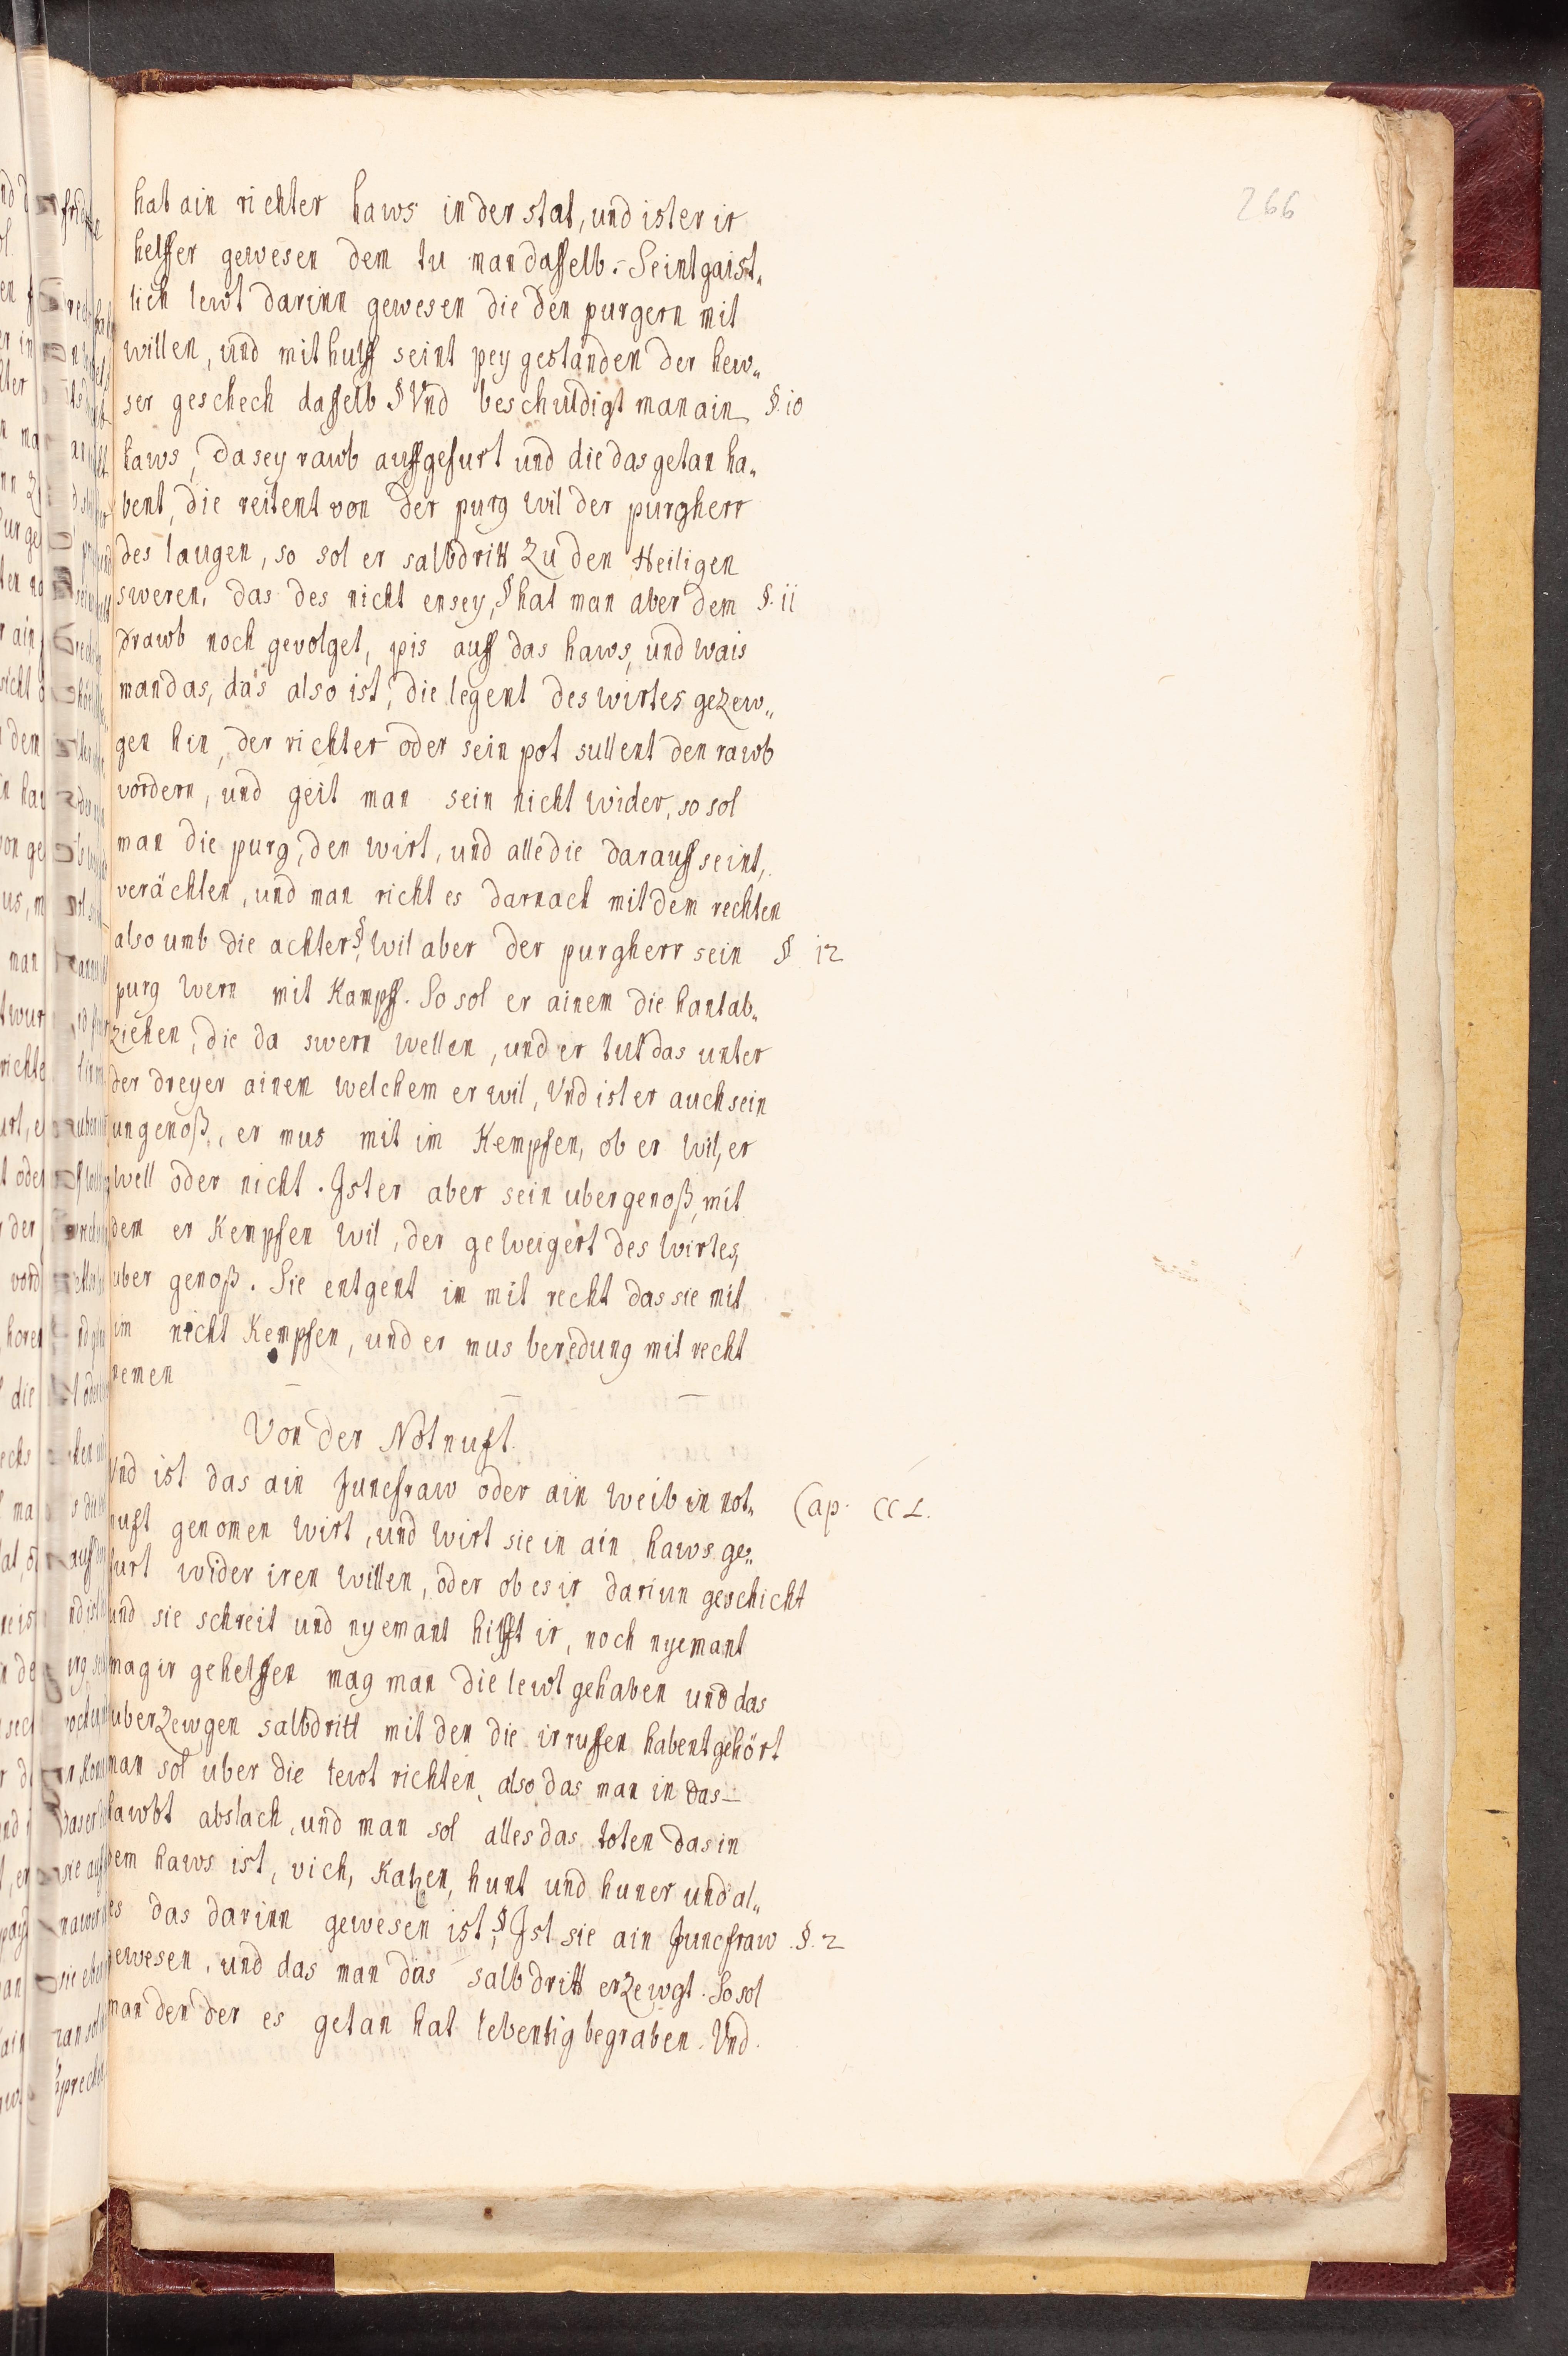 266
hat ain richter haws in der stat, und ist er ir
helffer gewesen dem tu man dasselb. Seint gaist„
lich lewt darinn gewesen die den purgern mit
willen, und mit hulff seint pey gestanden der hew„
ser geschech dasselb § Und beschuldigt man ain §. 10
haws, da sey rawb auffgefurt und die das getan ha„
bent, die reitent von der purg wil der purgherr
des laugen, so sol er salbdritt zu den Heiligen
sweren, das des nicht ensey, § hat man aber dem §. 11
rawb noch gevolget, pis auff das haws, und wais
man das, das also ist, die legent des wirtes gezew„
gen hin, der richter oder sein pot sullent den rawb
vordern, und geit man sein nicht wider, so sol
man die purg, den wirt, und alle die darauff seint,
verächten, und man richt es darnach mit dem rechten
also umb die achter, § wil aber der purgherr sein § 12
purg wern mit Kampff. So sol er ainem die hant ab„
ziehen, die da swern wellen, und er tut das unter
der dreyer ainem welchem er wil, Und ist er auch sein
ungenoß, er mus mit im Kempfen, ob er wil, er
well oder nicht. Ist er aber sein ubergenoß, mit
dem er Kempfen wil, der geweigert des wirtes,
uber genoß. Sie entgent im mit recht das sie mit
im nicht Kempfen, und er mus beredung mit recht
nemen
Von der Notnuft.
Und ist das ain Juncfraw oder ain weib in not„ Cap. CCL.
nuft genomen wirt, und wirt sie in ain haws ge„
furt wider iren willen, oder ob es ir darinn geschicht
und sie schreit und nyemant hilfft ir, noch nyemant
mag ir gehelffen mag man die lewt gehaben und das
uberzewgen salbdritt mit den die ir ruffen habent gehört
man sol uber die lewt richten, also das man in das
hawbt abslach, und man sol alles das toten das in
dem haws ist, vich, Katzen, hunt und huner und al„
les das darinn gewesen ist, § Ist sie ain Juncfraw §. 2
gewesen, und das man das salbdritt erzewgt. So sol
man den der es getan hat lebentig begraben. Und